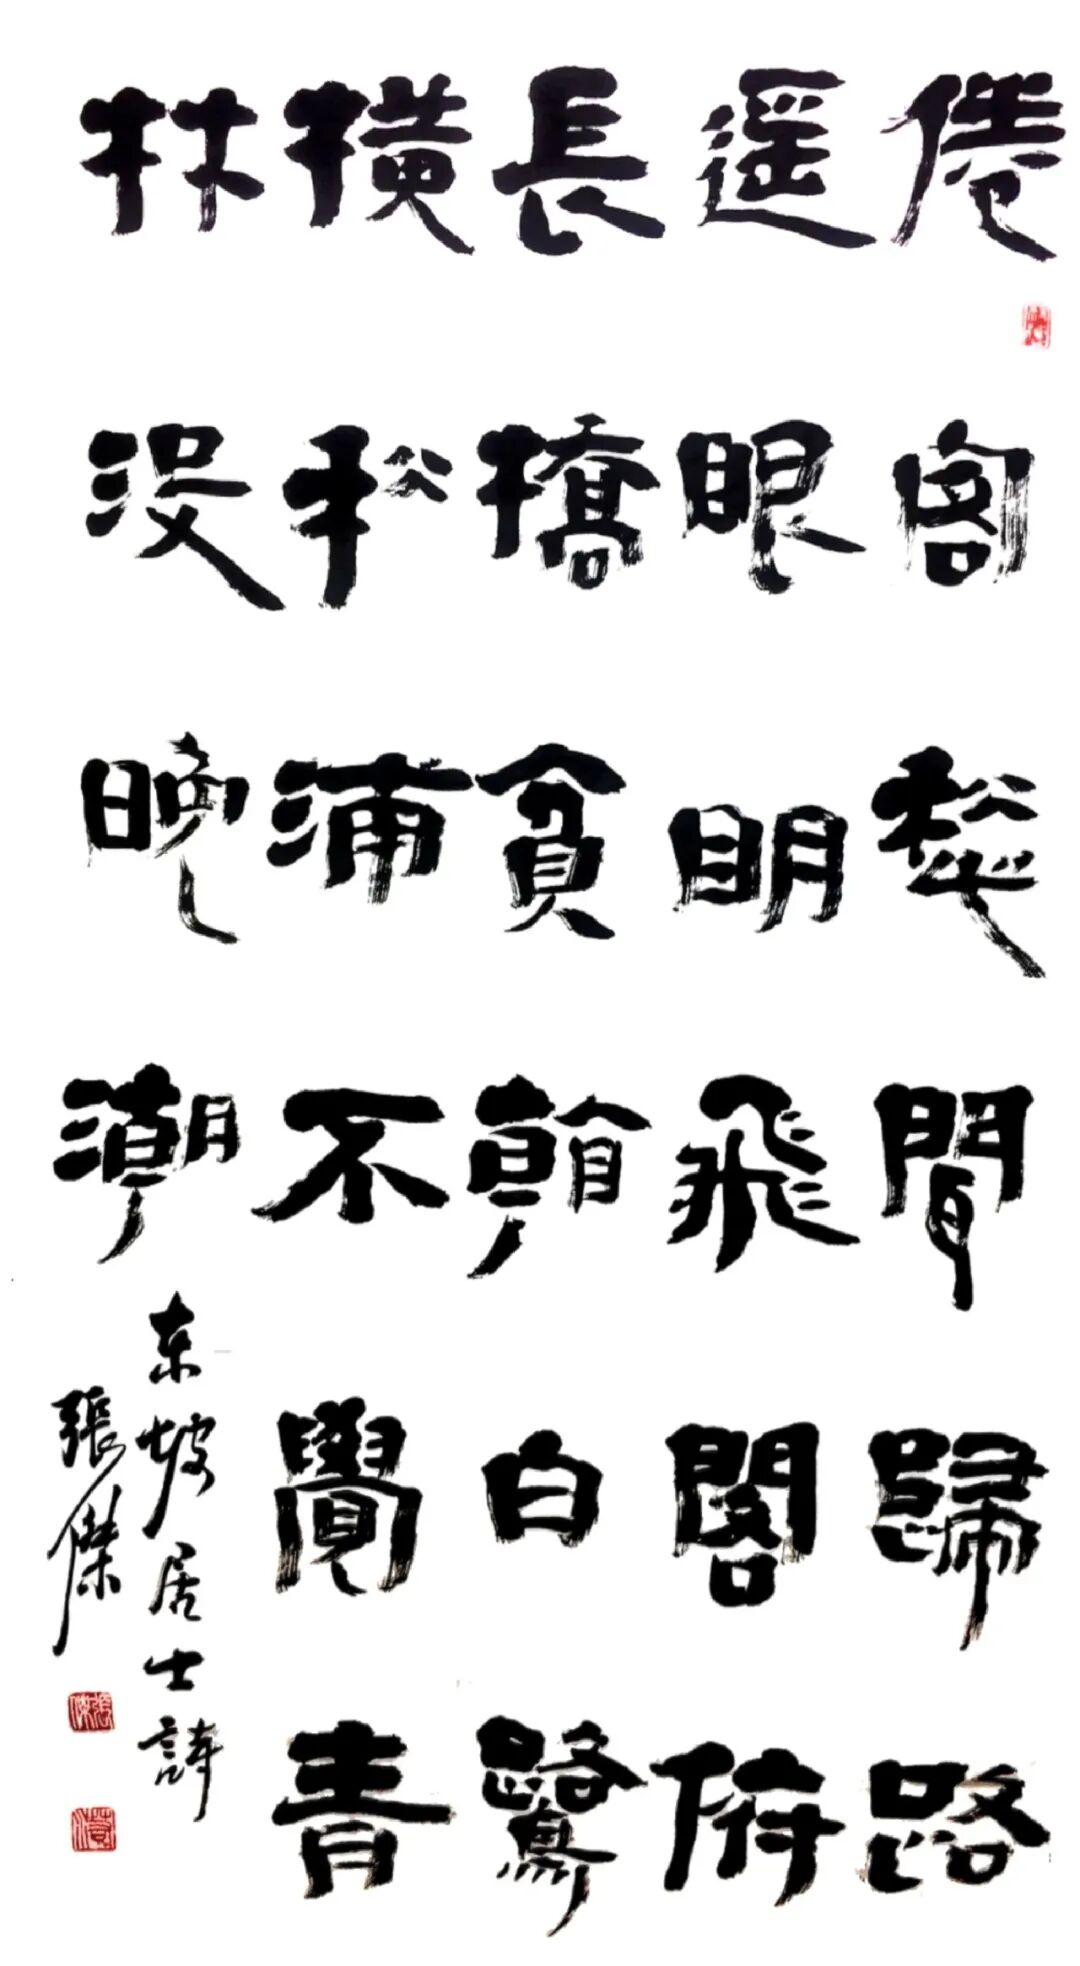 倦客愁聞歸路
遥眼眀飛閣俯
長橋貪看白鷺
橫秋浦不覺青
林没晚潮
东坡居士詩
張傑
張傑